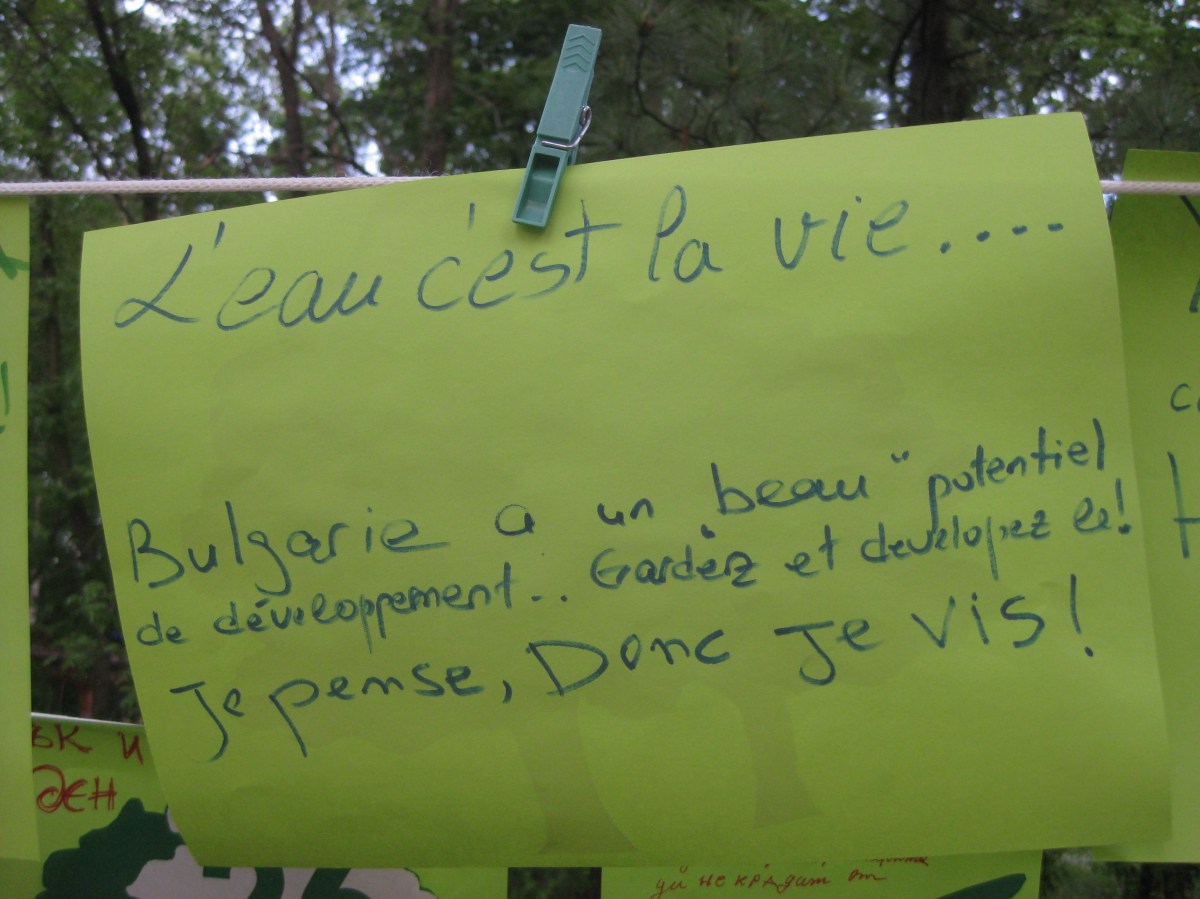 L'eau c'est la vie....
Bulgarie a un "beau" potentiel
de développement.. Gardez et developez le!
Je pense, Donc Je vis!
ък и
ден
ци не крадат от